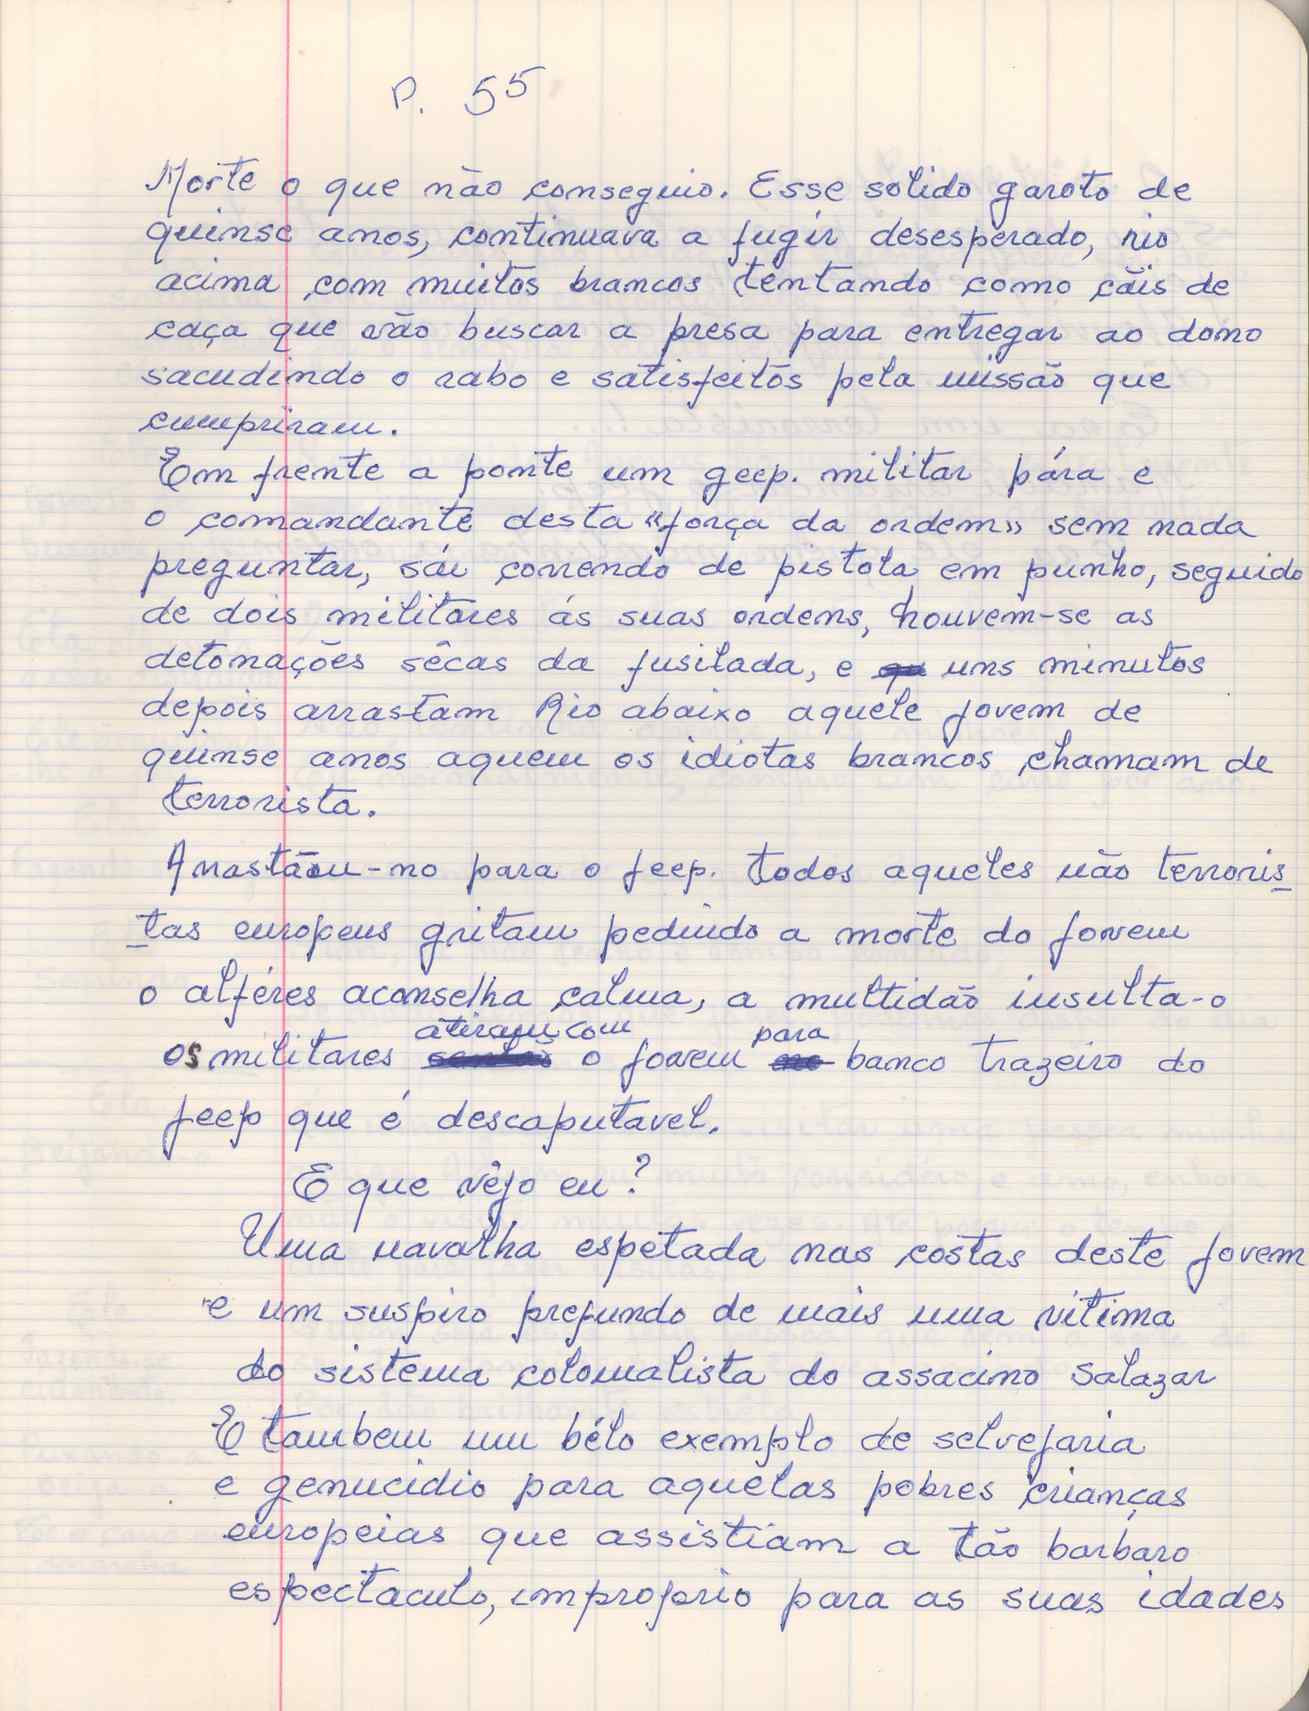 P. 55
Morte o que não conseguio. Esse solido garoto de
quinse anos, continuava a fugir desesperado, rio
acima com muitos brancos tentando como cãis de
caça que vão buscar a presa para entregar ao dono
sacudindo o rabo e satisfeitos pela missão que
cumpriram.
Em frente a ponte um geep. militar pára e
o comandante desta «força da ordem» sem nada
preguntar, sái correndo de pistola em punho, seguido
de dois militares ás suas ordens, houvem-se as
detonações sêcas da fusilada, e uns minutos
depois arrastam Rio abaixo aquele jovem de
quinse anos aquem os idiotas brancos chamam de
terrorista.
Arrastãou-no para o jeep. todos aqueles não terroris_
_tas europeus gritam pedindo a morte do jovem
o alféres aconselha calma, a multidão insulta-o
os militares atiram com o jovem para banco trazeiro do
jeep que é descaputavel.
E que vêjo eu?
Uma navalha espetada nas costas deste jovem
e um suspiro prefundo de mais uma vitima
do sistema colonialista do assacino Salazar
E tambem um bélo exemplo de selvejaria
e genucidio para aquelas pobres crianças
europeias que assistiam a tão barbaro
espectaculo, improprio para as suas idades